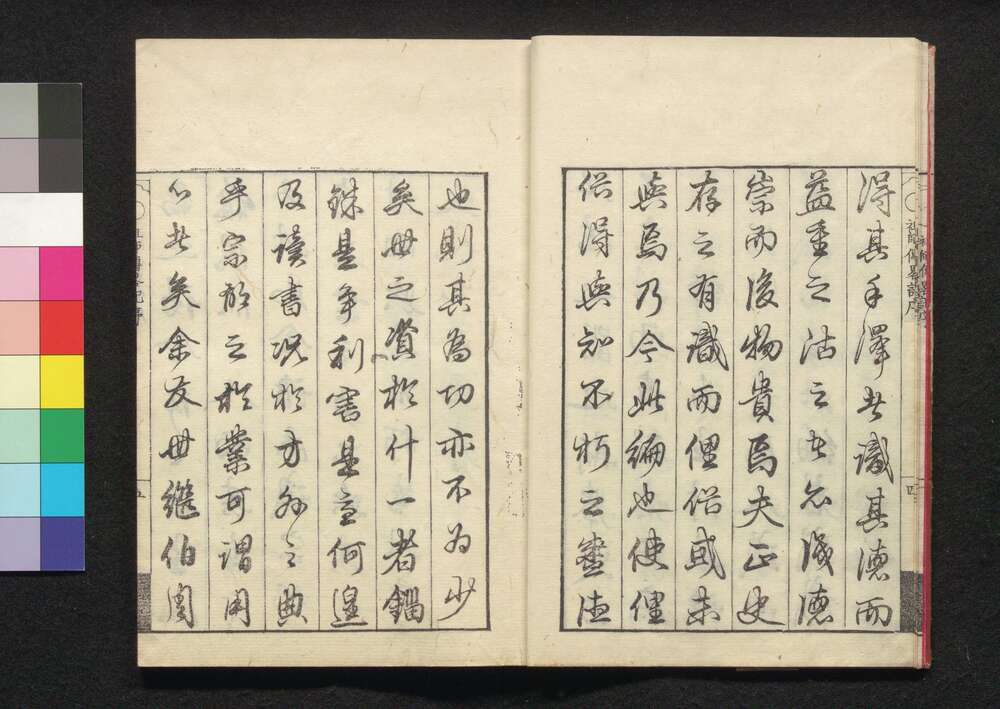 得其手澤者識其德而
益重之沽之者忘識德
崇而後物貴焉夫正史
存之有識而俚俗或未
與焉乃今此編也使俚
俗得與知不朽之盛德
也則其為功亦不為少
矣毋之資於什一者錙
銖是爭利害是
何遑
及讀書況於方外之典
乎宗
之於業可謂用
心者矣余友毋繼伯閒
四
五